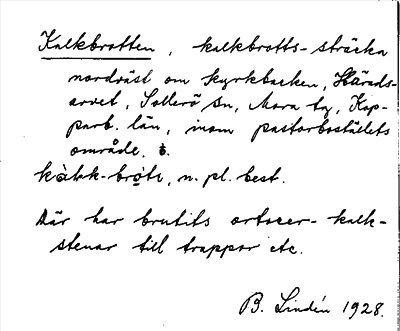 Kalkbrotten, kalkbrotts-sträcka
nordväst om kyrkbacken, Härads-
arvet, Sollerö sn, Mora tg, Kop-
parb. län, inom pastorboställets
område.
kàlk-bròtı, n. pl. best.
Där har brutits ortocer-kalk-
stenar till trappor etc.
B. Lindén 1928.